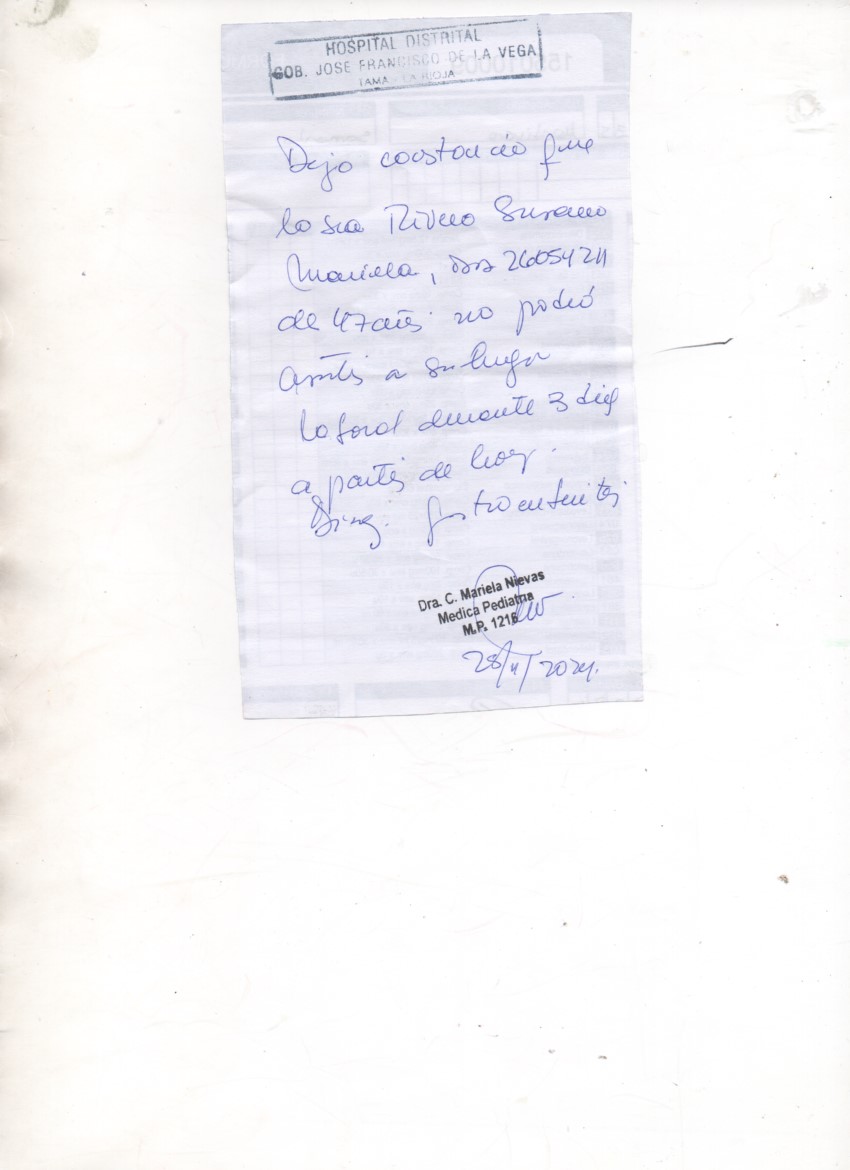 HOSPITAL DISTRITAL
GOB. JOSE FRANCISCO DE LA VEGA
TAMA - LA RIOJA
Dejo constancia que
la sra Rivero Susana
Mariela, DNI 26054211
de 47 años no podrá
asistir a su lugar
laboral durante 3 días
a partir de hoy.
Diag: gastroenteritis
Dra. C. Mariela Nievas
Medica Pediatria
M.P. 1216
28/11/2024.